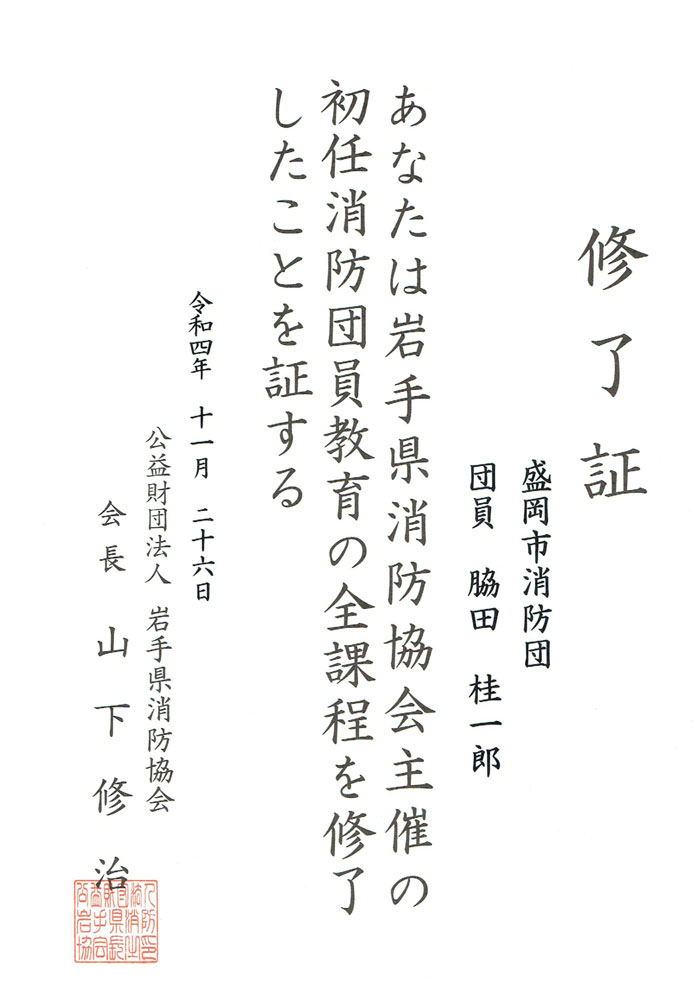 修了証
盛岡市消防団
団員 脇田 桂一郎
あなたは岩手県消防協会主催の
初任消防団員教育の全課程を修了
したことを証する
令和四年 十一月 二十六日
公益財団法人 岩手県消防協会
会長 山下修治